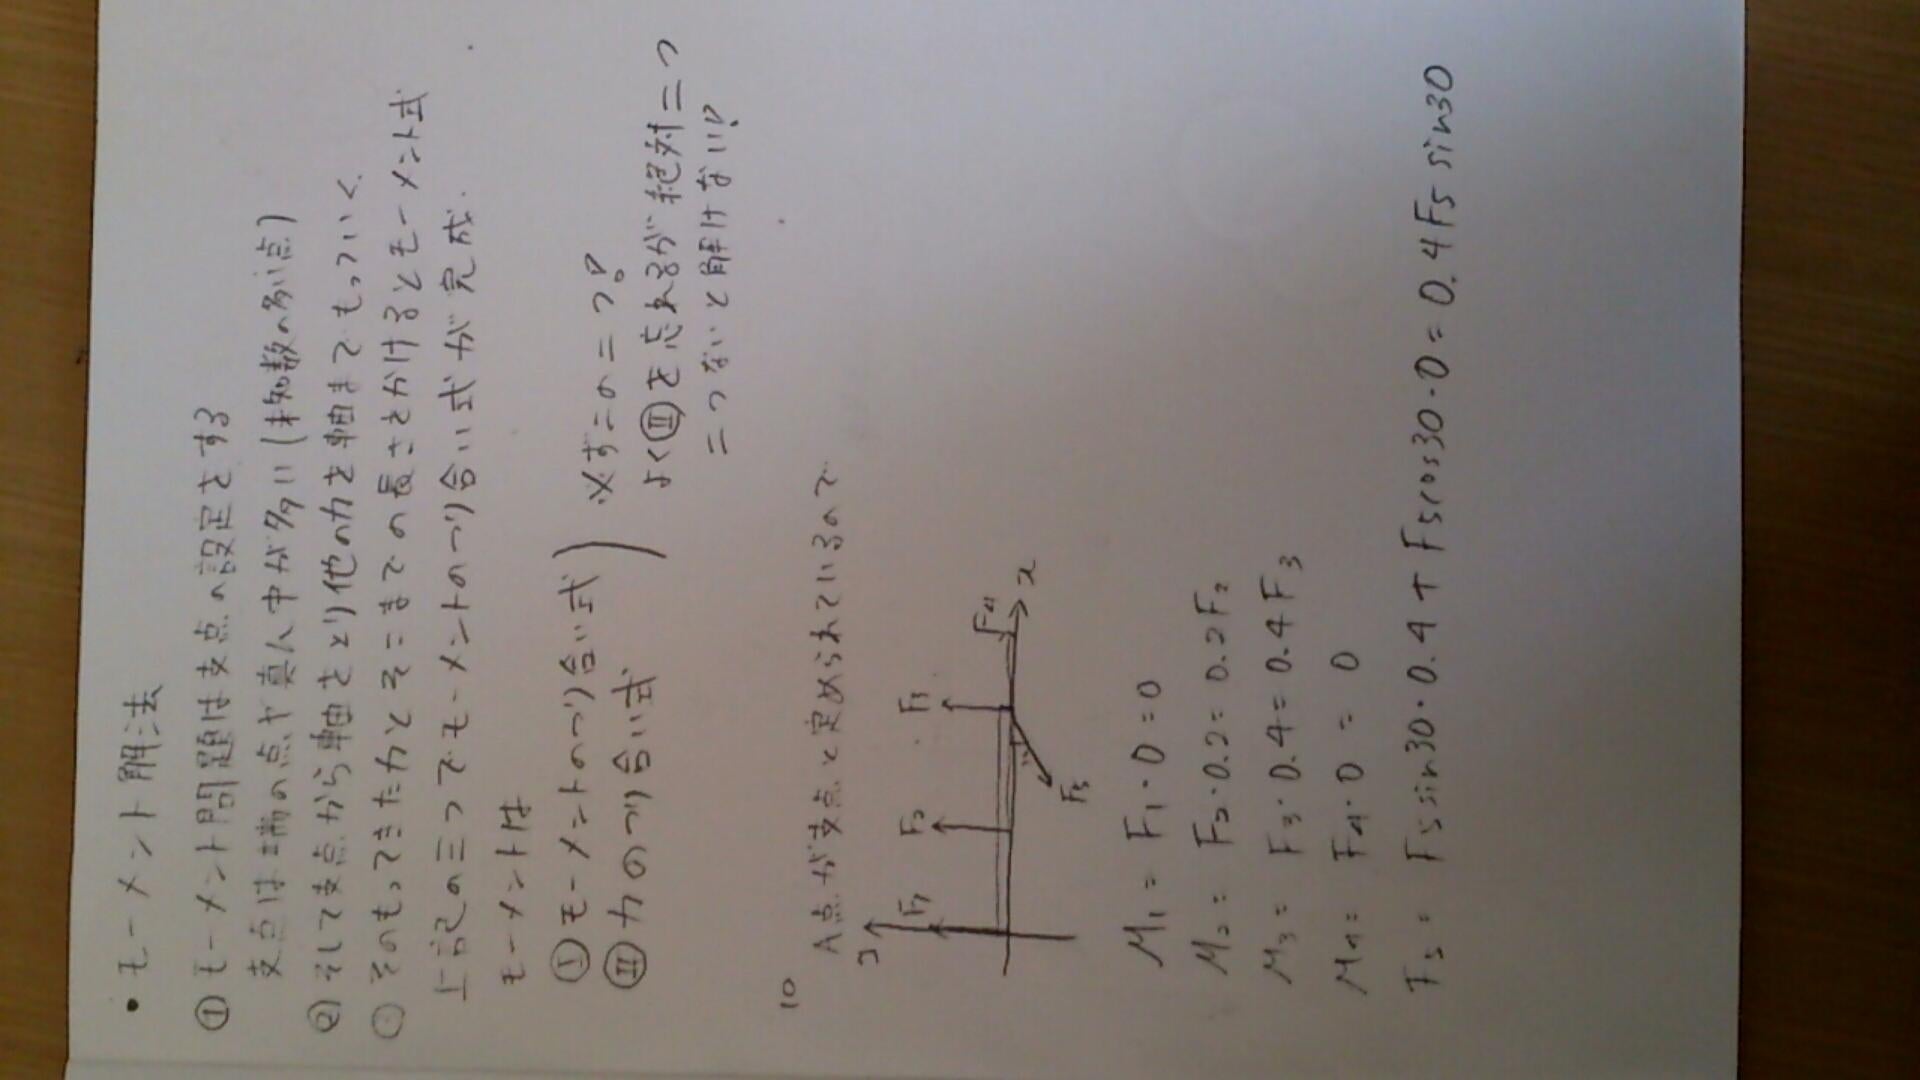 ・モーメント解法
① モーメント問題は支点の設定をする
支点は端の点や真ん中が多い(未知数の多い点)
② そして支点から軸をとり他の力を軸までもっていく
そのもってきた力とそこまでの長さをかけるとモーメント式
上記の三つでモーメントのつり合い式が完成.
モーメントは
Ⅰ モーメントのつり合い式
Ⅱ 力のつり合い式
必ずこの二つ!
よくⅡを忘れるが絶対二つ
二つないと解けない!
10
A点が支点と定められているので
y
F1 F2 F3 F4 x
F5
M1 = F1・0 = 0
M2 = F2・0.2 = 0.2F2
M3 = F3・0.4 = 0.4F3
M4 = F4・0 = 0
F5 = F5 sin30・0.4 + F5 cos30・0 = 0.4F5 sin30